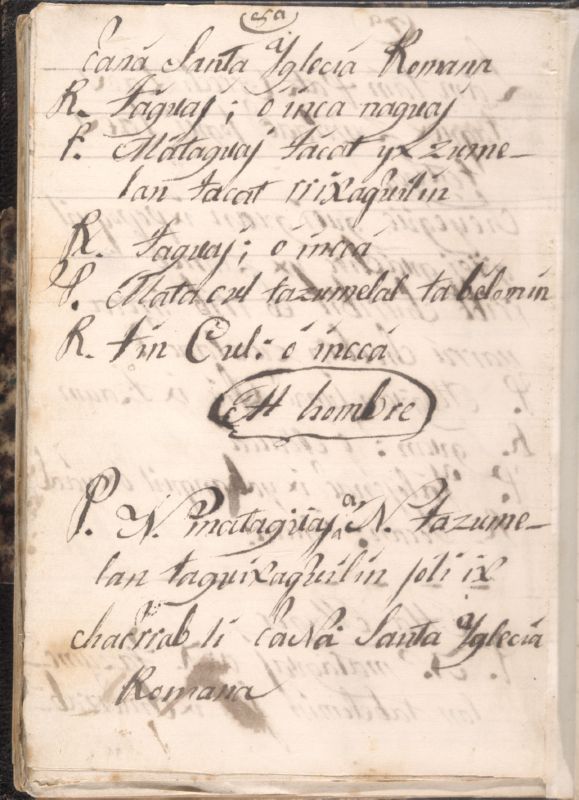 caná Santa Yglecia Romana
R. Táguaj; ó inca naguaj
P. Mataguaj tacat yx zume-
lan tacat rixaquilin
R. Taguaj; ó incá
P. Mata cul tazumelal tabelomin
R. tin Cul: ó inccá
Al hombre
P. N. mataguaj a N. tazume-
lan taguixaquilin ix
chacrrab li caná Santa Yglecia
Romana